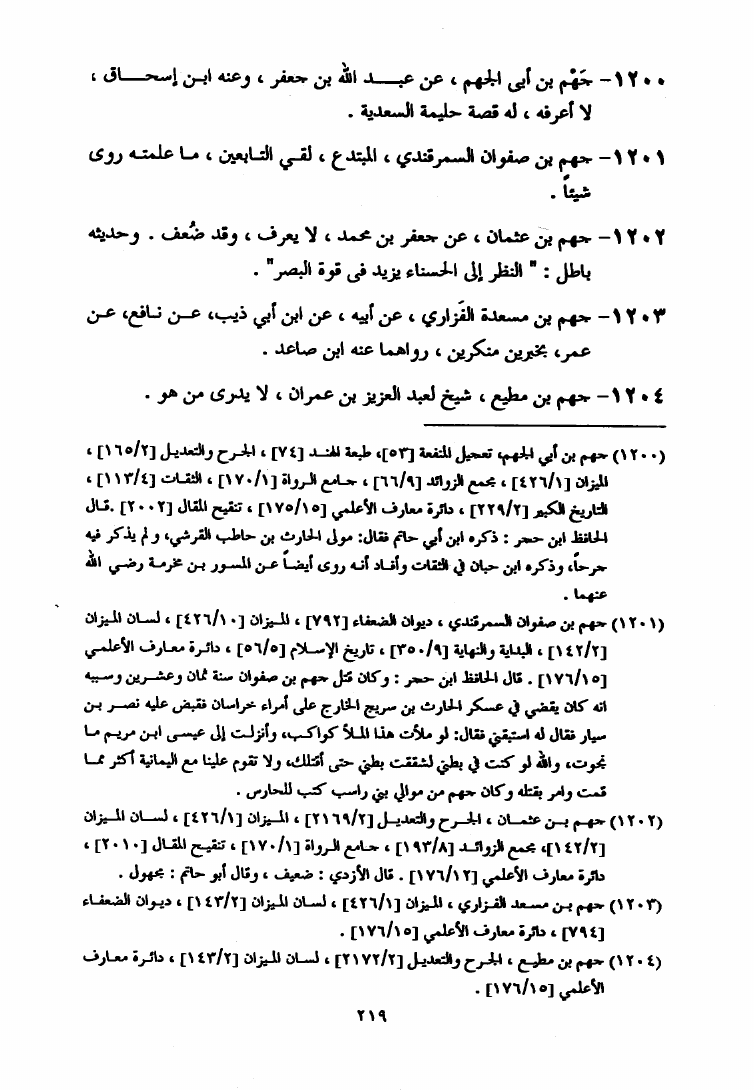 ١٢٠٠- جَهْم بن أبى الجهم ، عن عبـــد الله بن جعفر ، وعنه ابـن إسحـــاق ،
لا أعرفه ، له قصة حليمة السعدية .
١٢٠١- جهم بن صفوان السمرقندي ، المبتدع ، لقـي التـابعين ، مـا علمتـه روى
شيئاً .
١٢٠٢- جهم بن عثمان ، عن جعفر بن محمد ، لا يعرف ، وقد ضُعف . وحديثه
باطل : " النظر إلى الحسناء يزيد فى قوة البصر" .
١٢٠٣- جهم بن مسعدة الفَزاري ، عن أبيه ، عن ابن أبي ذيب، عـن نـافع، عـن
عمر، بخبرين منكرين ، رواهما عنه ابن صاعد .
١٢٠٤- جهم بن مطيع ، شيخ لعبد العزيز بن عمران ، لا يدرى من هو .
(١٢٠٠) جهم بن أبي الجهم، تعجيل المنفعة [٥٣]، طبعة الهنـد [٧٤] ، الجـرح والتعديـل [١٦٥/٢] ،
الميزان [٤٢٦/١] ، مجمع الزوائد [٦٦/٩] ، جـامع الـرواة [١٧٠/١] ، الثقـات [١١٣/٤] ،
التاريخ الكبير [٢٢٩/٢] ، دائرة معارف الأعلمي [١٧٥/١٥] ، تنقيح المقال [٢٠٠٢] .قـال
الحافظ ابن حجر : ذكره ابن أبي حاتم فقال: مولى الحارث بن حاطب القرشي، و لم يذكر فيه
جرحاً، وذكره ابن حبان في الثقات وأفـاد أنـه روى أيضـاً عـن المسور بـن مخرمة رضـي الله
عنهما .
(١٢٠١) جهم بن صفوان السمرقندي ، ديوان الضعفاء [٧٩٢] ، المـيزان [٤٢٦/١٠] ، لسـان المـيزان
[١٤٢/٢] ، البداية والنهاية [٣٥٠/٩] ، تاريخ الإسـلام [٥٦/٥] ، دائـرة معـارف الأعلمـي
[١٧٦/١٥] . قال الحافظ ابن حجر : وكان قتل جهم بن صفوان سنة ثمان وعشـرين وسببه
انه كان يقضي في عسكر الحارث بن سريج الخارج على أمراء خراسان فقبض عليه نصـر بـن
سيار فقال له استبقني فقال: لو ملأت هذا المـلأ كواكـب، وأنزلـت إلى عيسـى ابـن مريـم مـا
نجوت، والله لو كنت في بطني لشققت بطني حتى أقتلك، ولا تقوم علينا مع اليمانية أكثر ممـا
قمت وامر بقتله وكان جهم من موالي بني راسب كتب للحارس .
(١٢٠٢) جهـم بـن عثمـان ، الجـرح والتعديـل [٢١٦٩/٢] ، المـيزان [٤٢٦/١] ، لسـان المـيزان
[١٤٢/٢]، مجمع الزوائـد [١٩٣/٨] ، جـامع الـرواة [١٧٠/١] ، تنقيـح المقـال [٢٠١٠] ،
دائرة معارف الأعلمي [١٧٦/١٢] . قال الأزدي : ضعيف ، وقال أبو حاتم : مجهول .
(١٢٠٣) جهم بـن مسعد الفـزاري ، الميزان [٤٢٦/١] ، لسـان المـيزان [١٤٣/٢] ، ديـوان الضعفـاء
[٧٩٤] ، دائرة معارف الأعلمي [١٧٦/١٥] .
(١٢٠٤) جهم بن مطيـع ، الجـرح والتعديـل [٢١٧٢/٢] ، لسـان المـيزان [١٤٣/٢] ، دائـرة معـارف
الأعلمي [١٧٦/١٥] .
٢١٩